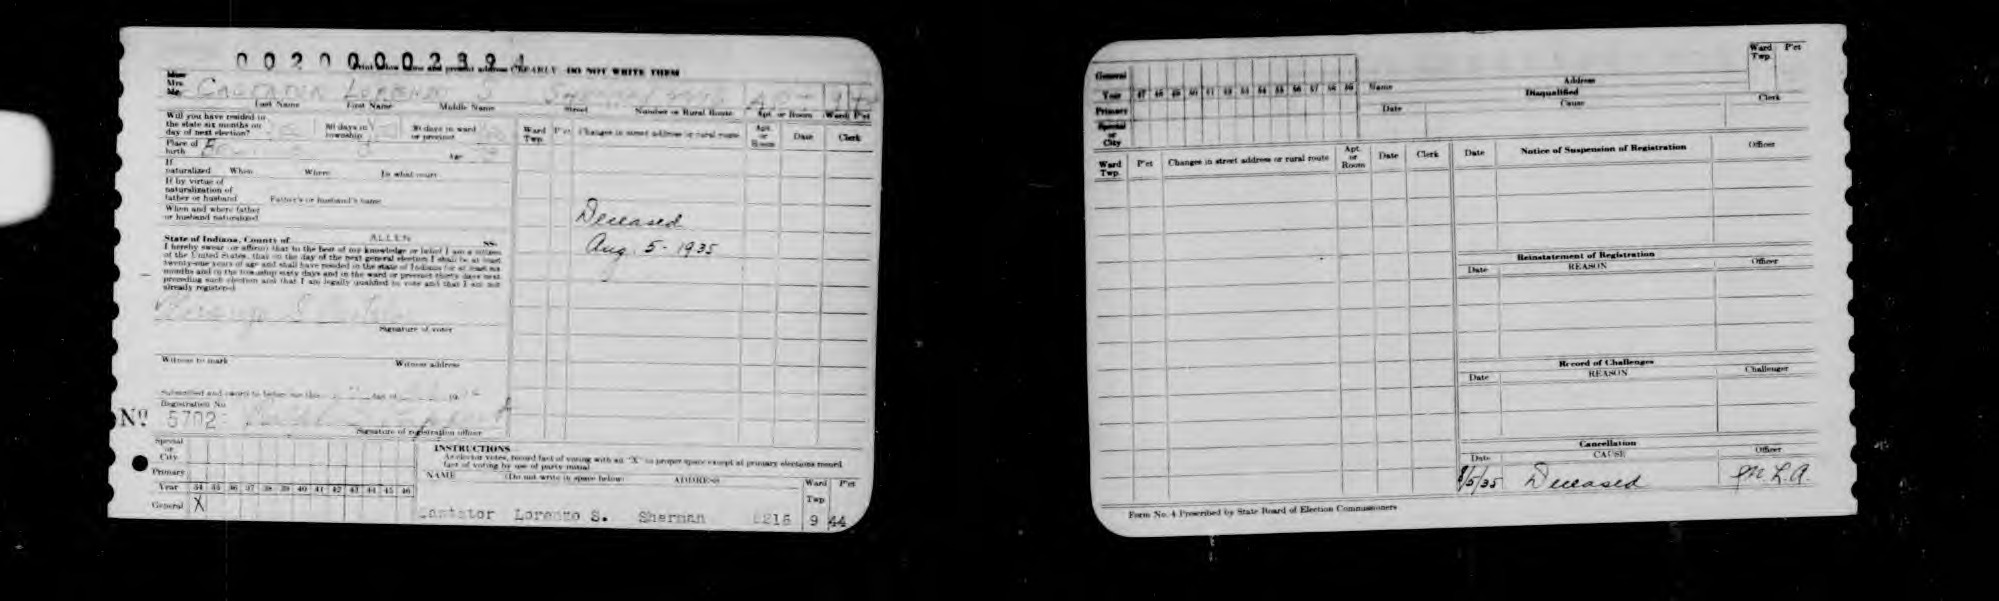 0020000239
CLEARLY DO NOT WRITE THEM
Miss
Mrs.
Mr. LORENZO S SHERMAN
Last Name First Name Middle Name Street Number or Rural Route Apt. or Room Ward P'ct
Will you have resided in
the state six months on
day of next election? 60 days in
township 30 days in ward
or precinct
Ward
Twp. P'ct Changes in street address or rural route Apt.
or
Room Date Clerk
Place of
birth Age
If
naturalized When Where In what court
If by virtue of
naturalization of
father or husband Father's or husband's name
When and where father
or husband naturalized
Deceased
Aug. 5 - 1935
State of Indiana, County of ALLEN ss.
I hereby swear or affirm that to the best of my knowledge or belief I am a citizen
of the United States, that on the day of the next general election I shall be at least
twenty-one years of age and shall have resided in the state of Indiana for at least six
months and in the township sixty days and in the ward or precinct thirty days next
preceding such election and that I am legally qualified to vote and that I am not
already registered
Signature of voter
Witness to mark Witness address
Subscribed and sworn to before me this day of 19
Registration No.
No. 5702
Signature of registration officer
Special
or
City
Primary
Year 34 35 36 37 38 39 40 41 42 43 44 45 46
General X
INSTRUCTIONS
As elector votes, record fact of voting with an "X" in proper space except at primary elections record
fact of voting by use of party initial
NAME (Do not write in space below) ADDRESS Ward
Twp P'ct
Lorenzo S. Sherman 9 44
General
Year 47 48 49 50 51 52 53 54 55 56 57 58 59
Primary
Special
or
City
Name Address Ward
Twp. P'ct
Disqualified
Date Cause Clerk
Ward
Twp. P'ct Changes in street address or rural route Apt.
or
Room Date Clerk
Date Notice of Suspension of Registration Officer
Reinstatement of Registration
Date REASON Officer
Record of Challenges
Date REASON Challenger
Cancellation
Date CAUSE Officer
8/5/35 Deceased M.L.A.
Form No. 4 Prescribed by State Board of Election Commissioners